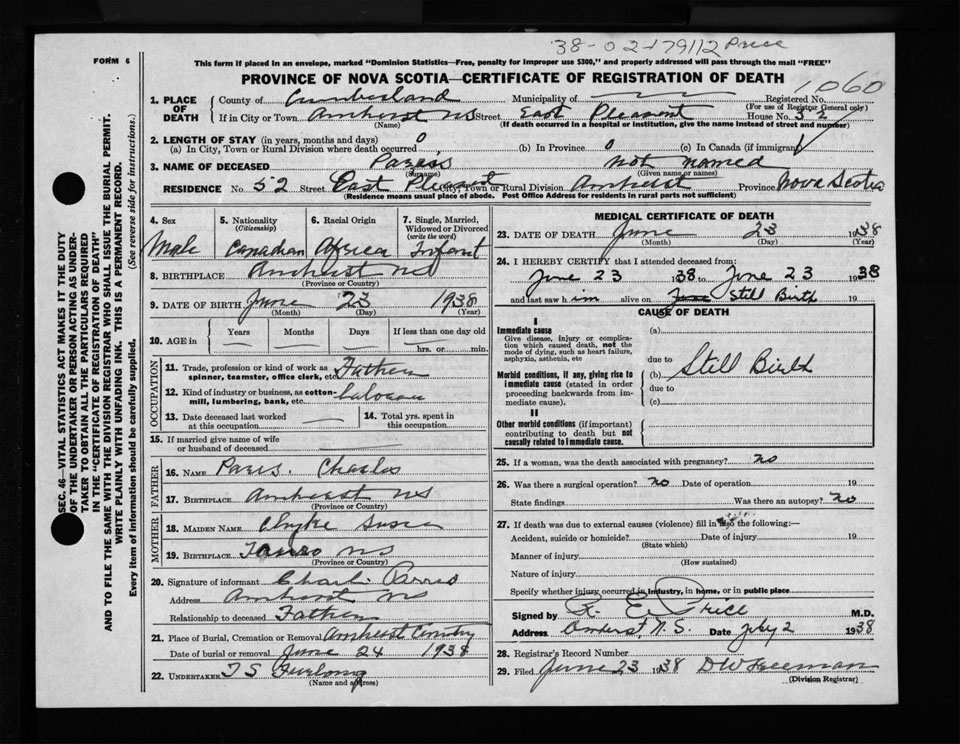 38-02-179112 Price
FORM 6
This form if placed in an envelope, marked "Dominion Statistics—Free, penalty for improper use $300," and properly addressed will pass through the mail "FREE"
PROVINCE OF NOVA SCOTIA—CERTIFICATE OF REGISTRATION OF DEATH
1060
1. PLACE OF DEATH
County of Cumberland Municipality of Registered No.
(For use of Registrar General only)
If in City or Town Amherst NS Street East Pleasant House No. 52
(Name) (If death occurred in a hospital or institution, give the name instead of street and number)
2. LENGTH OF STAY (in years, months and days)
(a) In City, Town or Rural Division where death occurred 0 (b) In Province 0 (c) In Canada (if immigrant)
3. NAME OF DECEASED Paris not named
(Surname) (Given name or names)
RESIDENCE No. 52 Street East Pleasant City, Town or Rural Division Amherst Province Nova Scotia
(Residence means usual place of abode. Post Office Address for residents in rural parts not sufficient)
4. Sex Male
5. Nationality (Citizenship) Canadian
6. Racial Origin Africa
7. Single, Married, Widowed or Divorced (write the word) Infant
8. BIRTHPLACE Amherst NS
(Province or County)
9. DATE OF BIRTH June 23 1938
(Month) (Day) (Year)
10. AGE in Years Months Days If less than one day old
hrs. or min.
OCCUPATION
11. Trade, profession or kind of work as spinner, teamster, office clerk, etc. Father
12. Kind of industry or business, as cotton-mill, lumbering, bank, etc.
13. Date deceased last worked at this occupation
14. Total yrs. spent in this occupation
15. If married give name of wife or husband of deceased
FATHER
16. NAME Paris. Charles
17. BIRTHPLACE Amherst NS
(Province or Country)
MOTHER
18. MAIDEN NAME Clyke
19. BIRTHPLACE Truro NS
(Province or Country)
20. Signature of informant
Address Amherst NS
Relationship to deceased Father
21. Place of Burial, Cremation or Removal Amherst
Date of burial or removal June 24 1938
22. UNDERTAKER T S Furlong
(Name and address)
MEDICAL CERTIFICATE OF DEATH
23. DATE OF DEATH June 23 1938
(Month) (Day) (Year)
24. I HEREBY CERTIFY that I attended deceased from:
June 23 1938 to June 23 1938
and last saw him alive on Still Birth 19
CAUSE OF DEATH
I
Immediate cause
Give disease, injury or complication which caused death, not the mode of dying, such as heart failure, asphyxia, asthenia, etc
(a)
due to
Morbid conditions, if any, giving rise to immediate cause (stated in order proceeding backwards from immediate cause).
(b) Still Birth
due to
(c)
II
Other morbid conditions (if important) contributing to death but not causally related to immediate cause.
25. If a woman, was the death associated with pregnancy? no
26. Was there a surgical operation? no Date of operation 19
State findings Was there an autopsy? no
27. If death was due to external causes (violence) fill in also the following:—
Accident, suicide or homicide? Date of injury 19
(State which)
Manner of injury
(How sustained)
Nature of injury
Specify whether injury occurred in industry, in home, or in public place
Signed by R. E. Price M.D.
Address Amherst, N.S. Date July 2 1938
28. Registrar's Record Number
29. Filed June 23 1938 DW Freeman
(Division Registrar)
SEC. 46—VITAL STATISTICS ACT MAKES IT THE DUTY
OF THE UNDERTAKER OR PERSON ACTING AS UNDER-
TAKER TO OBTAIN ALL THE PARTICULARS REQUIRED
IN THE "CERTIFICATE OF REGISTRATION OF DEATH"
AND TO FILE THE SAME WITH THE DIVISION REGISTRAR WHO SHALL ISSUE THE BURIAL PERMIT.
WRITE PLAINLY WITH UNFADING INK. THIS IS A PERMANENT RECORD.
Every item of information should be carefully supplied. (See reverse side for instructions.)